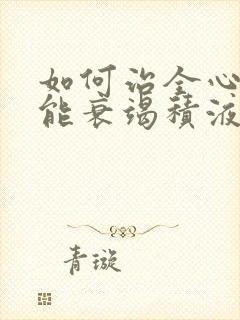 如何治全心
能衰竭积液
青璇